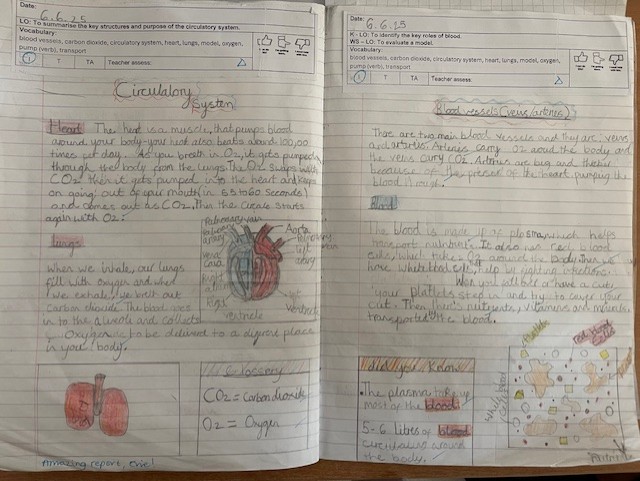 Date: 6.6.25
LO: To summarise the key structures and purpose of the circulatory system.
Vocabulary:
blood vessels, carbon dioxide, circulatory system, heart, lungs, model, oxygen,
pump (verb), transport
I T TA Teacher assess:
Circulatory
System
Heart The heart is a muscle, that pumps blood
around your body-your heart also beats around 100,00
times per day. As you breath in O2, it gets pumped
through the body from the lungs. The O2 swaps with
CO2 then it gets pumped into the heart and keeps
on going out of your mouth in 55 to 60 seconds)
and comes out as CO2, then the circle starts
again with O2.
lungs
When we inhale, our lungs
fill with oxygen and when
we exhale, we let out
Carbon dioxide. The blood goes
in to the alveoli and collects
Oxygen to be delivered to a place
in your body.
Pulmonary vein
Pulmonary artery
vena cava
Right
ventricle
Aorta
Pulmonary
artery
Left ventricle
Glossary
CO2 = Carbon dioxide
O2 = Oxygen
Amazing report,
Date: 6.6.25
K - LO: To identify the key roles of blood.
WS - LO: To evaluate a model.
Vocabulary:
blood vessels, carbon dioxide, circulatory system, heart, lungs, model, oxygen,
pump (verb), transport
I T TA Teacher assess:
Blood vessels (veins/arteries)
There are two main blood vessels and they are; veins
and arteries. Arteries carry O2 around the body and
the veins carry CO2. Arteries are big and thicker
because of the of the heart, pumping the
blood
Blood
The blood is made up of plasma, which helps
transport nutrients. It also has red blood
cells, which takes O2 around the body. Then we
have white blood cells, help by fighting infections.
When you cut or have a cut,
your platlets step in and try to cover your
cut. Then there's nutrients, vitamins and minerals
transported the blood.
did you Know
. The plasma take up
most of the blood.
5-6 litres of blood
circulating around
the body.
red blood cells
white blood cells